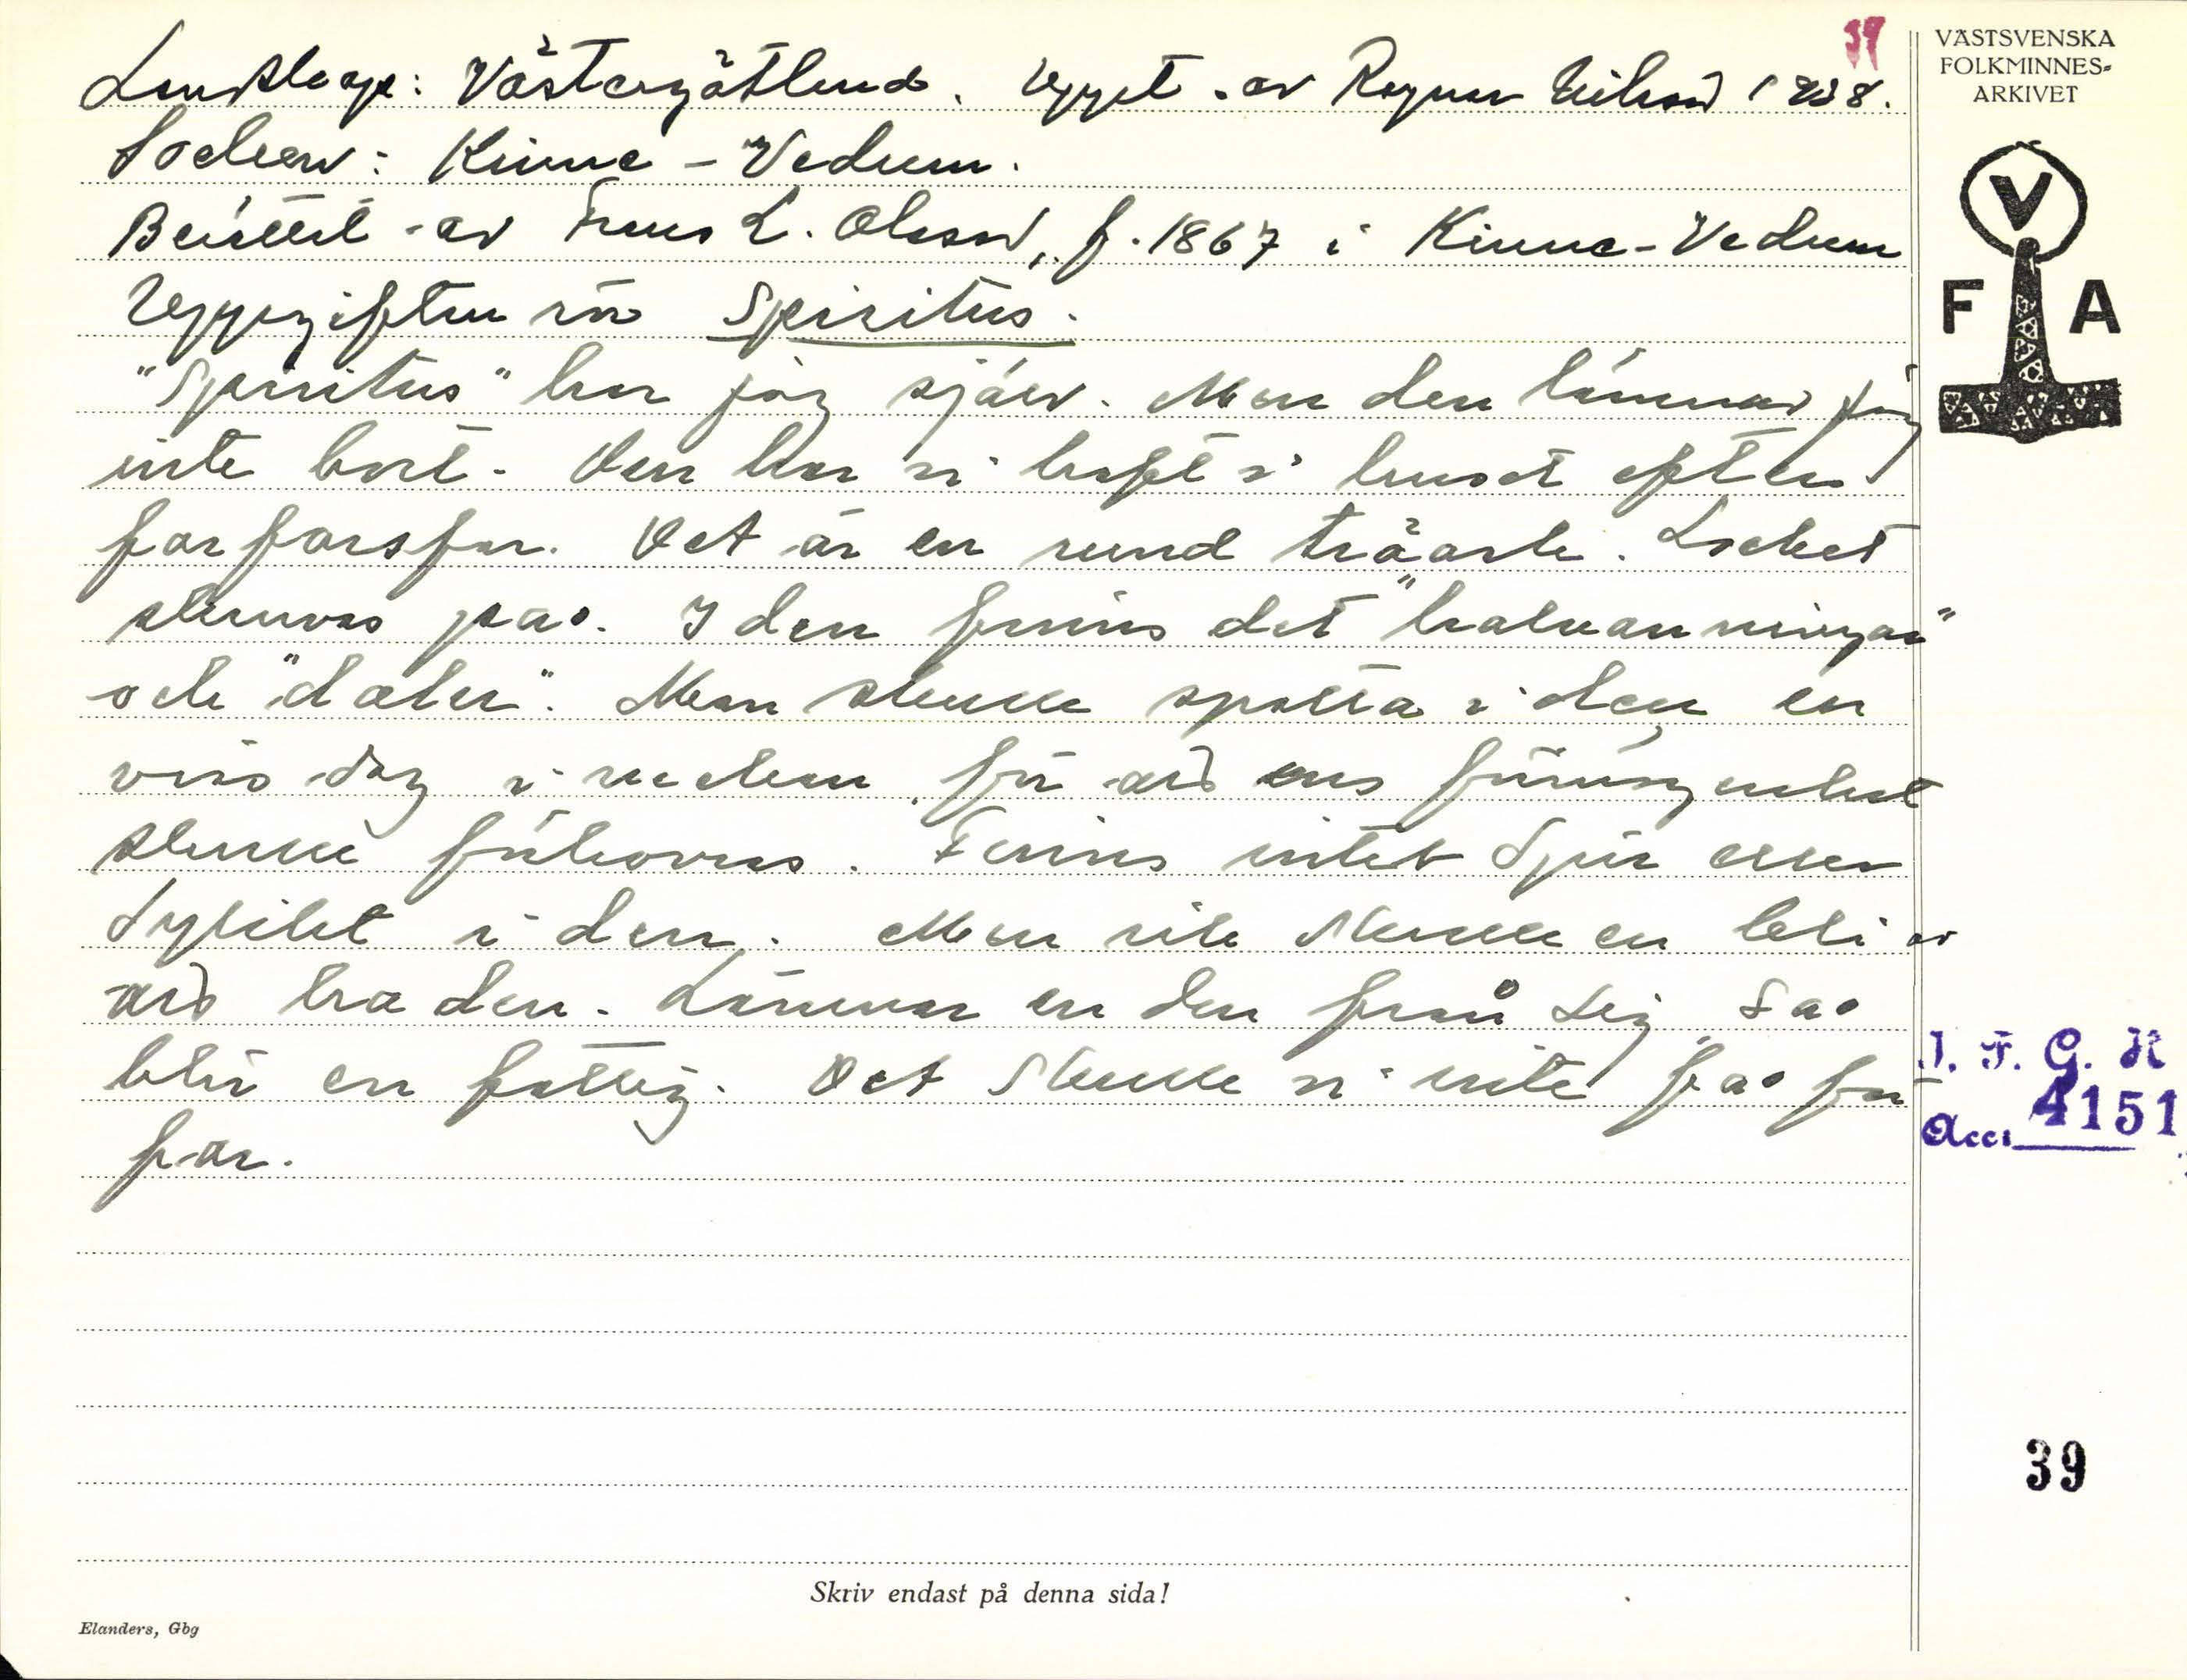 39
Landskap: Västergötland. Uppt. av Ragnar Nilsson 1938.
Socken: Kinne-Vedum.
Berättat av Frans L. Olsson, f. 1867 i Kinne-Vedum
Uppgiften rör Spiritus.
"Spiritus" har jag själv. Men den lämnar jag
inte bort. Den har vi haft i huset efter
farfarsfar. Det är en rund träask. Locket
skruvas på. I den finns det
och Man skulle spotta i den en
viss dag i veckan för att ens förmögenhet
skulle förkovras. Finns intet djur eller
dylikt i den. Men inte skulle en bli av
att ha den. Lämnar en den från sig, så
blir en fattig. Det skulle vi inte få för
far.
VÄSTSVENSKA
FOLKMINNES-
ARKIVET
V
F A
I. F. G. H
Acc. 4151
39
Skriv endast på denna sida!
Elanders, Gbg